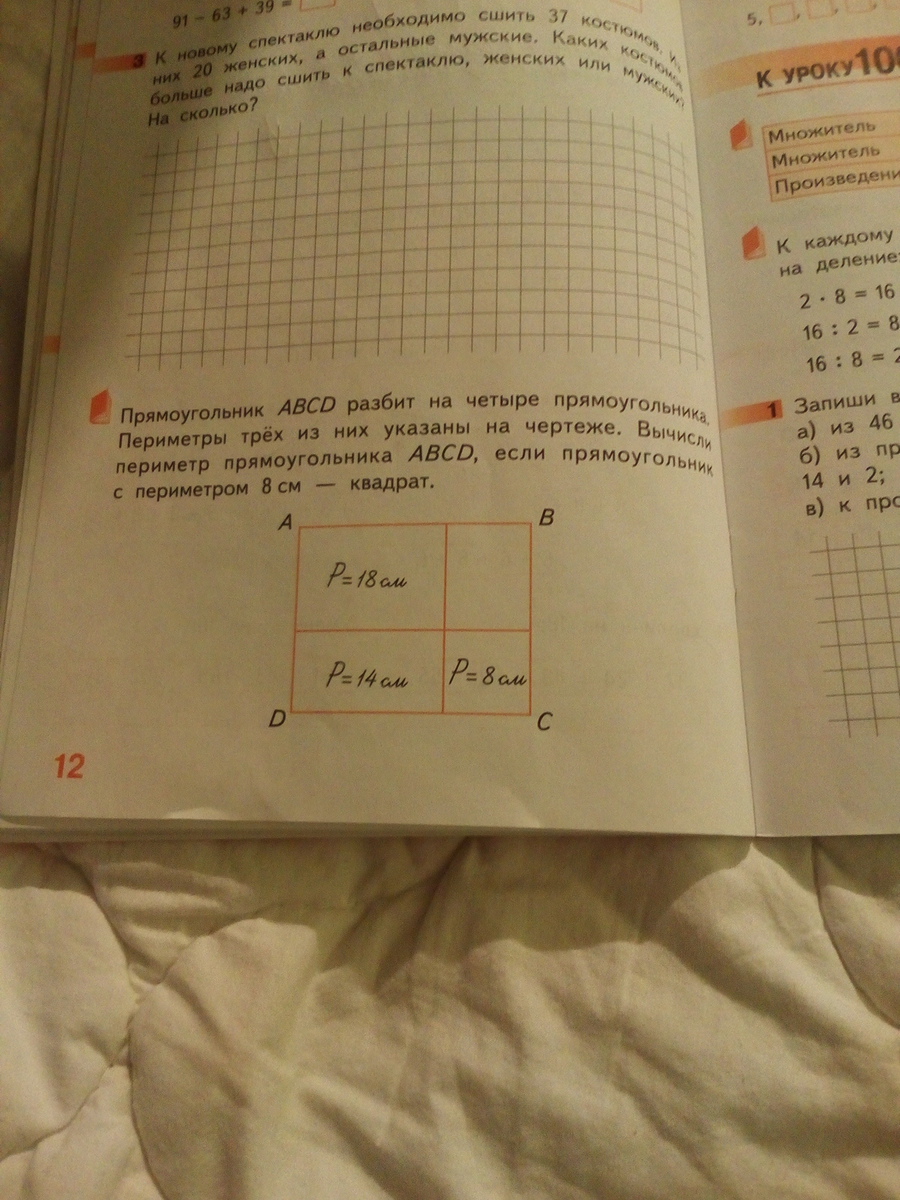 91 − 63 + 39 =
3 К новому спектаклю необходимо сшить 37 костюмов. Из
них 20 женских, а остальные мужские. Каких костюмов
больше надо сшить к спектаклю, женских или мужских?
На сколько?
Прямоугольник ABCD разбит на четыре прямоугольника.
Периметры трёх из них указаны на чертеже. Вычисли
периметр прямоугольника ABCD, если прямоугольник
с периметром 8 см — квадрат.
A B
P=18 см
P=14 см P=8 см
D C
12
5,
К УРОКУ
Множитель
Множитель
К каждому
на деление:
2 · 8 = 16
16 : 2 = 8
16 : 8 =
1 Запиши
а) из 46
б) из
14 и 2;
в) к